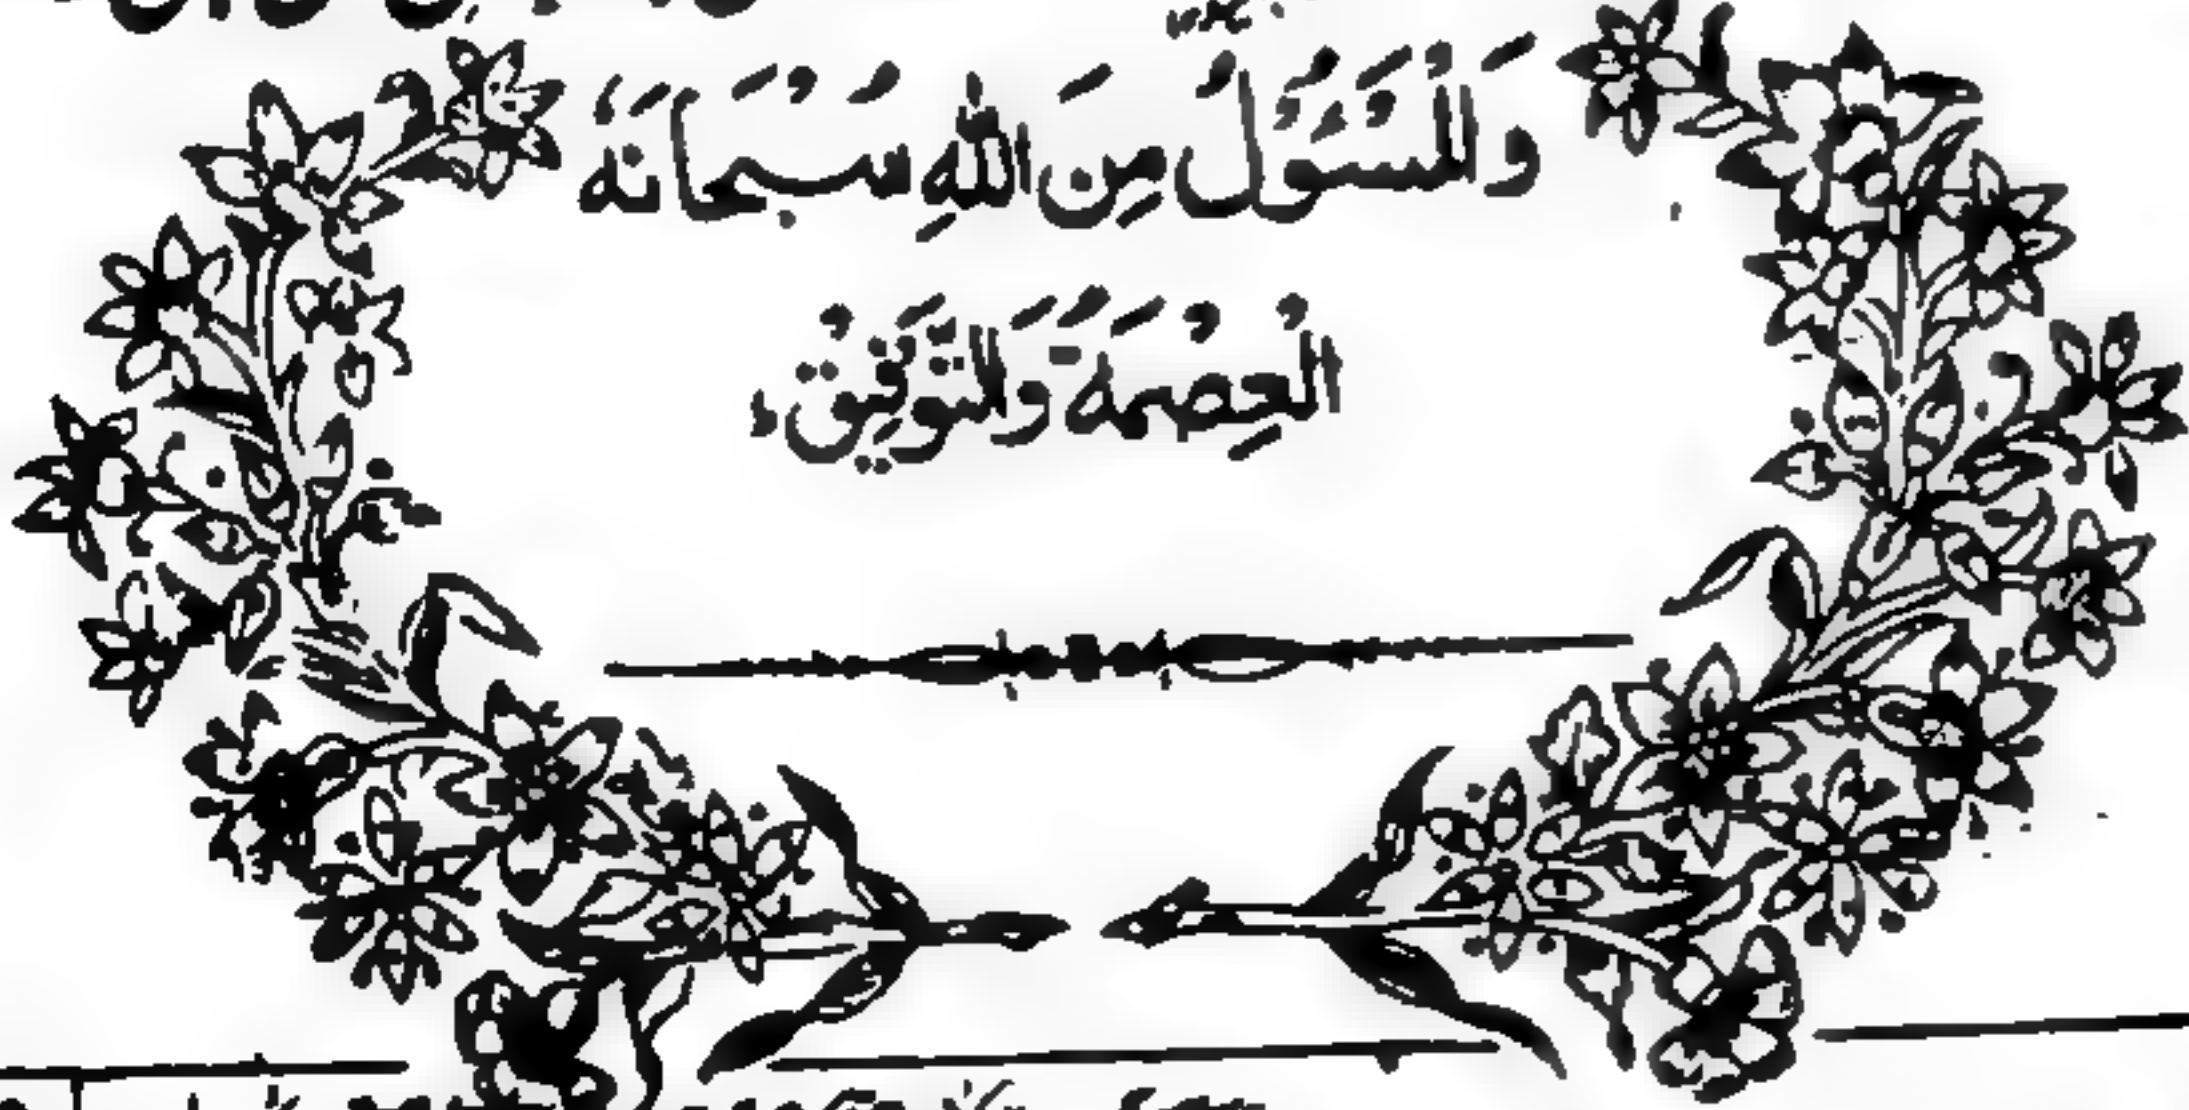 وَالْمَسْئُوْلُ مِنَ اللّٰهِ سُبْحَانَهٗ
الْعِصْمَةُ وَالتَّوْفِيْقُ